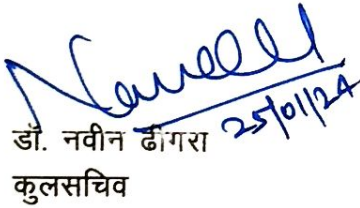 Naveen
25/01/24
डॉ. नवीन ढींगरा
कुलसचिव